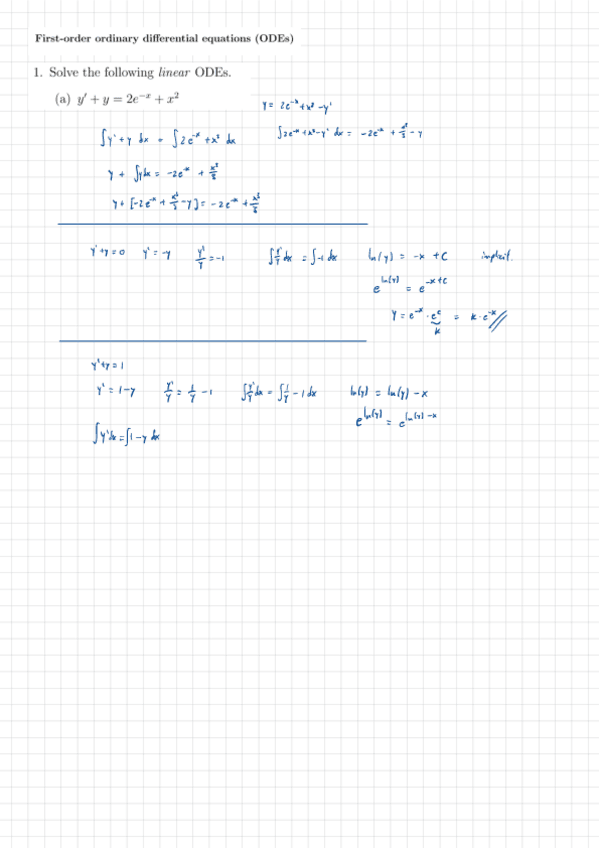 First-order ordinary differential equations (ODEs)
1. Solve the following linear ODEs.
(a) y′ + y = 2e⁻ˣ + x²
y = 2e⁻ˣ + x² - y'
∫y' + y dx = ∫2e⁻ˣ + x² dx
∫2e⁻ˣ + x² - y' dx = -2e⁻ˣ + x³/3 - y
y + ∫y dx = -2e⁻ˣ + x³/3
y + [-2e⁻ˣ + x³/3 - y] = -2e⁻ˣ + x³/3
y' + y = 0 y' = -y y'/y = -1 ∫y'/y dx = ∫-1 dx ln(y) = -x + C implicit.
e^ln(y) = e^(-x+c)
y = e⁻ˣ · eᶜ = k · e⁻ˣ
k
y' + y = 1
y' = 1 - y y'/y = 1/y - 1 ∫y'/y dx = ∫1/y - 1 dx ln(y) = ln(y) - x
e^ln(y) = e^(ln(y) - x)
∫y' dx = ∫1 - y dx